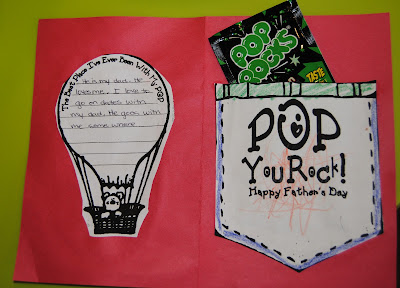 The Best Place I've Ever Been With My POP
He is my dad. He
loves me. I love to
go on dates with
my dad. He goes with
me some where
POP
ROCKS
TASTE
POP
You Rock!
Happy Father's Day